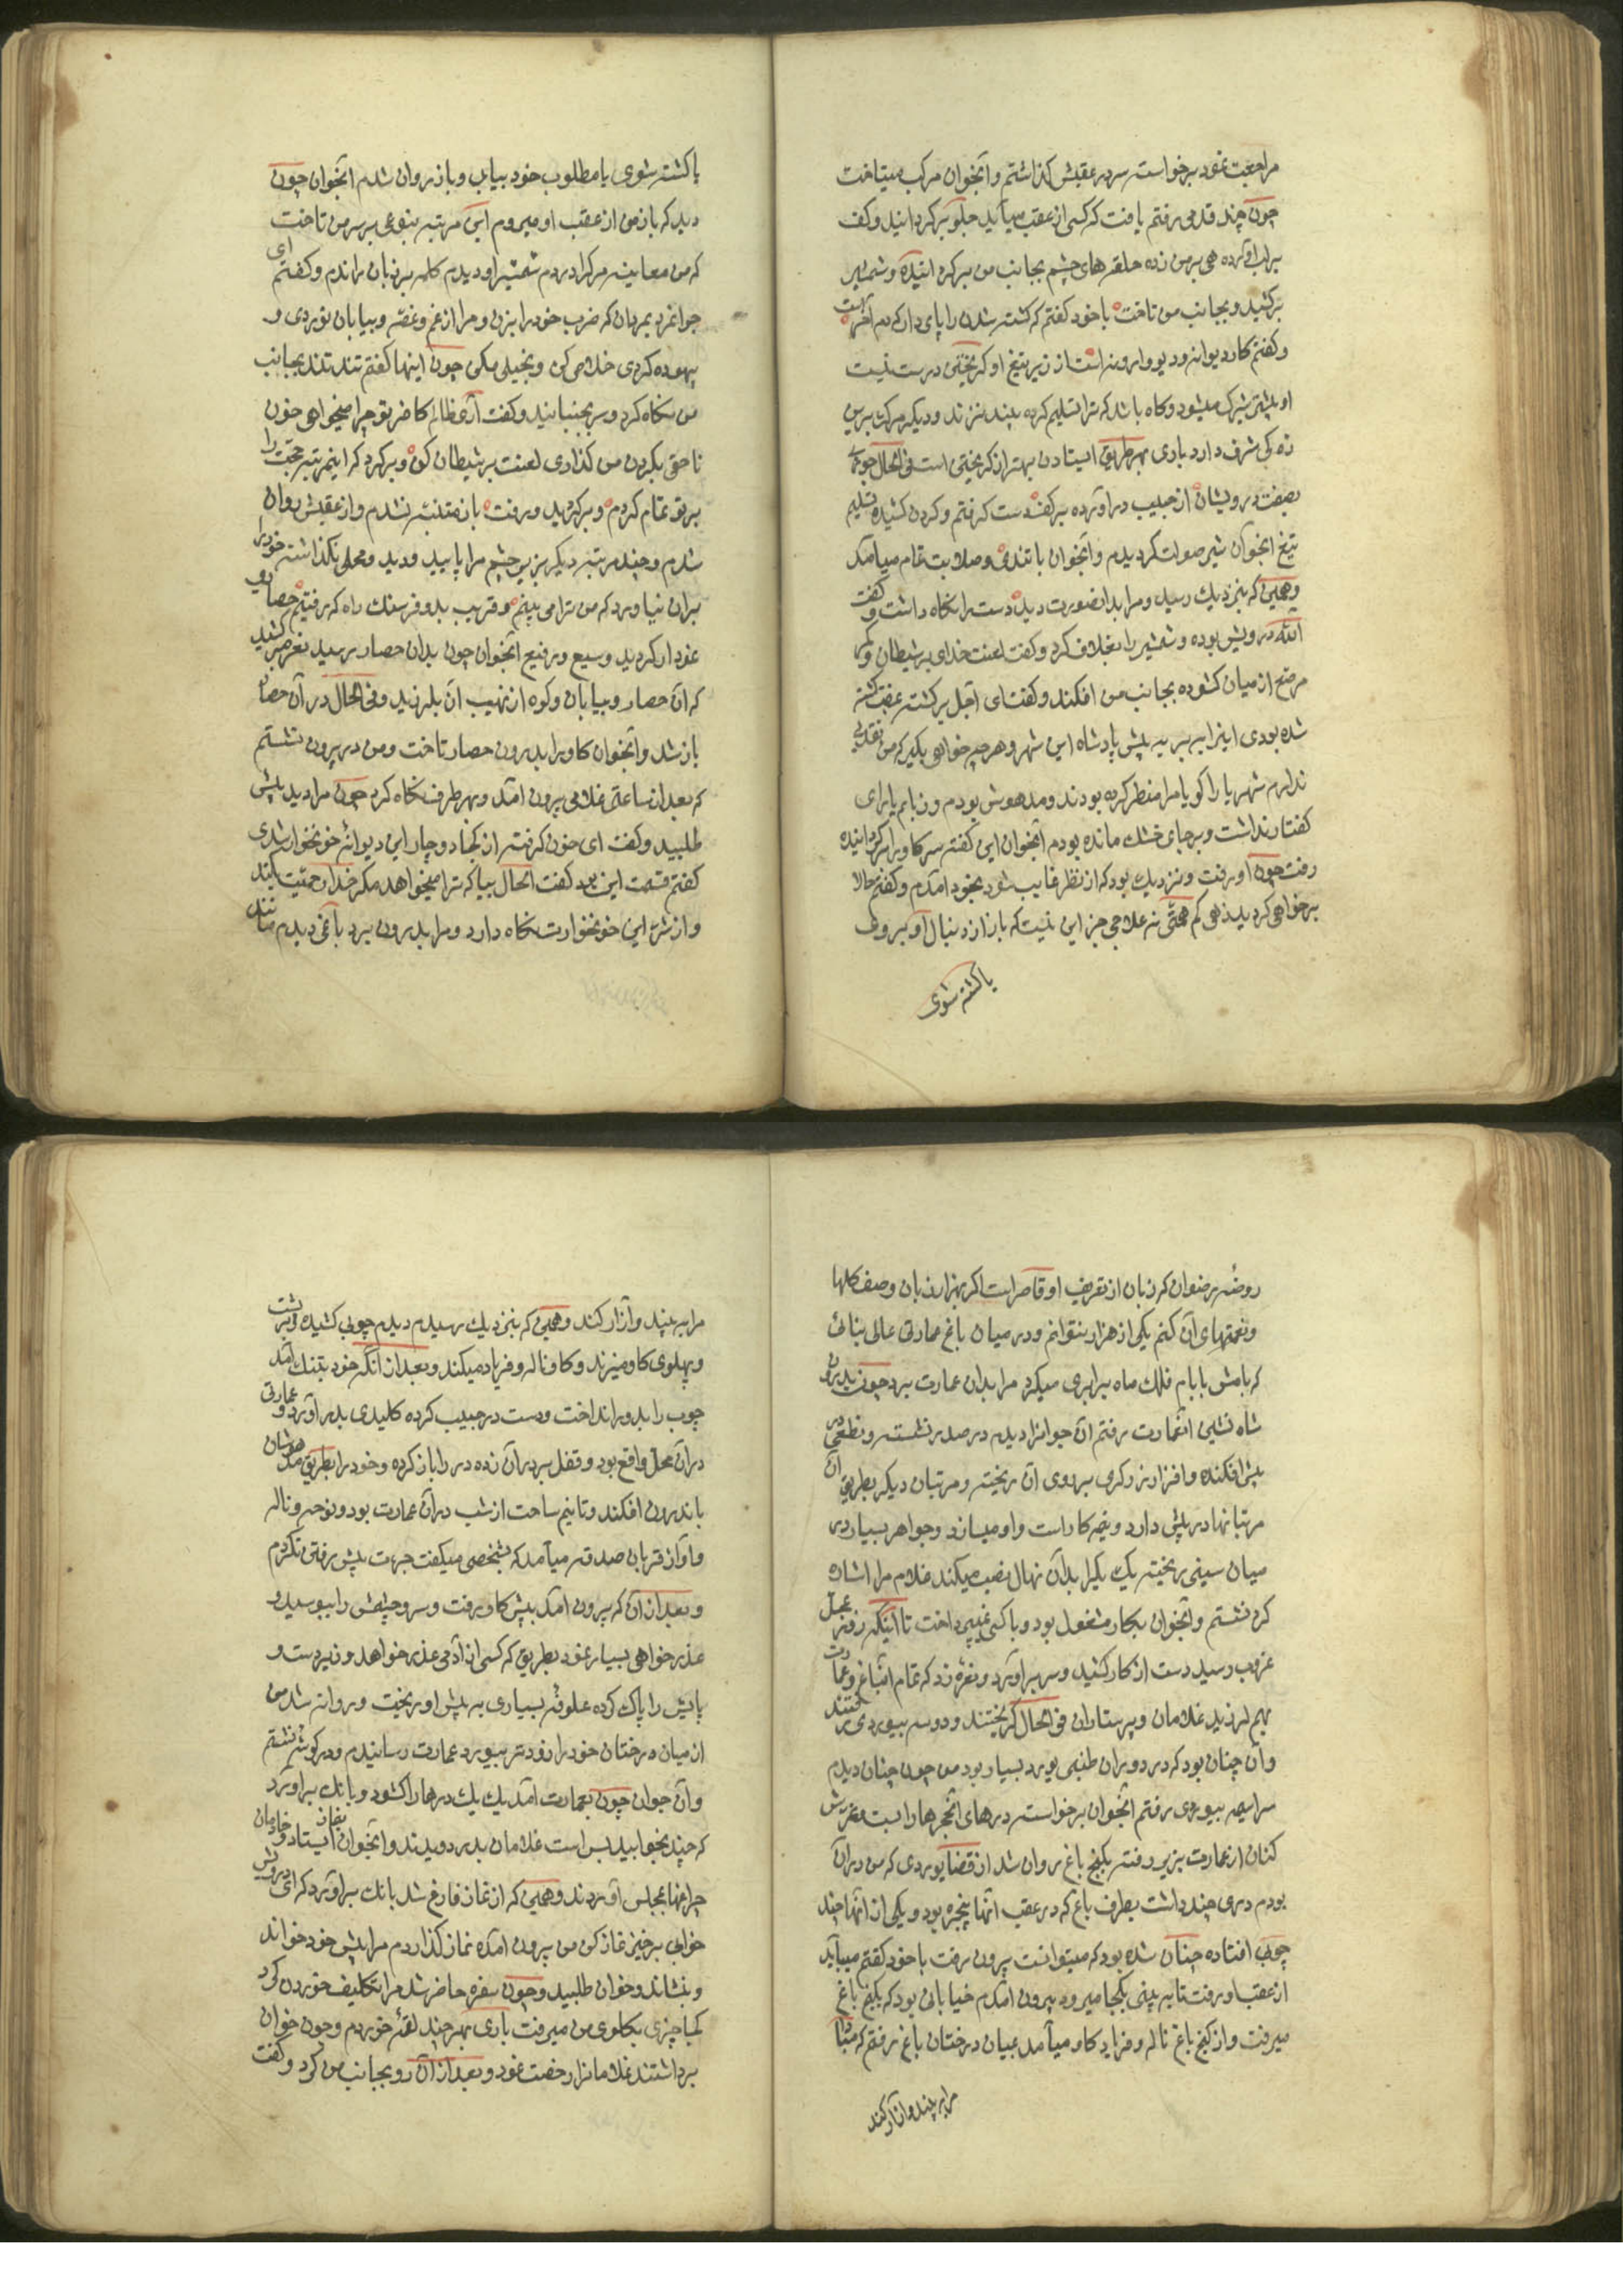 مراجعت نمود برخواسته سر در عقبش گذاشتم و آنجوان مرکب میتاخت
چون چند قدمی رفتم یافت که کسی از عقب میآید جلو برگردانید و کف
بر لب آورده هی بر من زده حلقهای چشم بجانب من برگردانیده و شمشیر
برکشید و بجانب من تاخت با خود گفتم که کشته شدن را پای دار که دم آخر است
و گفتم کار دیوانه و دیو وارونه است از زیر تیغ او گریختن درست نیست
او بیشتر میشود و گاه باشد که ترا تسلیم کرده بیند نزند و دیگر مرگ برین
زندگی شرف دارد باری بهر طریق ایستادن بهتر از گریختن است فی الحال
بصفت درویشان از جیب درآورده بر کف دست گرفتم و گردن کشیده تسلیم
تیغ آنجوان شیر صولت گردیدم و آنجوان با تندی و صلابت تمام میآمد
و همین که بنزدیک رسید و مرا بدانصورت دید دست را نگاه داشت و گفت
الله درویش بوده و شمشیر را بغلاف کرد و گفت لعنت خدای بر شیطان و کمر
مرصع از میان گشوده بجانب من افکند و گفت ای اجل برگشته عقب کشته
شده بودی اینرا ببر به پیش پادشاه این شهر و هر چه خواهی بگیر که من نقدینه
ندارم شهریارا گویا مرا منظر کرده بودند و مدهوش بودم و زبانم یارای
گفتار نداشت و بر جای خشک مانده بودم آنجوان این گفته سر گاو را برگردانیده
رفت چون او برفت و نزدیک بود که از نظر غایب شود بخود آمدم و گفتم حالا
برخواهی گردید زهی کم همتی نه علاجی جز این نیست که باز از دنبال او بروی
یا کشته شوی
یا کشته شوی یا مطلوب خود بیابی و باز روان شدم آنجوان چون
دید که باز من از عقب او میروم این مرتبه بنوعی بر سر من تاخت
که من معاینه مرگ را در دم شمشیر او دیدم کلمه بر زبان راندم و گفتم ای
جوانمرد بمردان که ضرب خود را بزن و مرا از غم و غصه و بیابان نوردی و
بیهوده گردی خلاص کن و بخیلی مکن چون اینها گفتم تند تند بجانب
من نگاه کرد و سر بجنبانید و گفت آری ظالم کافر تو چرا میخواهی خون
ناحق بگردن من گذاری لعنت بر شیطان کن و برگرد که اینمرتبه حجت را
بر تو تمام کردم و برگردید و رفت باز متنبه نشدم و از عقبش روان
شدم و چند مرتبه دیگر بزیر چشم مرا پایید و دید و محلی نگذاشت خود را
بران نیاورد که من ترا می بینم و قریب بدو فرسنگ راه که رفتیم حصاری
نمودار گردید وسیع و رفیع آنجوان چون بدان حصار رسید نعره بر کشید
که آن حصار و بیابان و کوه از نهیب آن بلرزید و فی الحال در آن حصار
باز شد و آنجوان گاو را بدرون حصار تاخت و من در بیرون نشستم
که بعد از ساعتی غلامی بیرون آمد و بهر طرف نگاه کرد چون مرا دید پیش
طلبید و گفت ای خون گرفته از کجا دوچار این دیوانه خونخوار شدی
گفتم قسمت این بود گفت الحال بیا که ترا میخواهد مگر خدا رحمت کند
و از شر این خونخوارت نگاه دارد و مرا بدرون برد باغی دیدم مانند
روضه رضوان که زبان از تعریف او قاصر است اگر بهزار زبان وصف گلها
و نعمتهای آن کنم یکی از هزار نتوانم و در میان باغ عمارتی عالی بنائی
که بامش با بام فلک ماه برابری میکرد مرا بدان عمارت برد چون بدرون
شاه نشین آنعمارت رفتم آن جوانرا دیدم در صدر نشسته و نطعی در
پیش افکنده و افزار زرگری بر روی آن ریخته و مرتبان دیگر بطریق آن
مرتبانها در پیش دارد و نیمه کار است و او میسازد و جواهر بسیار در
میان سینی ریخته یک یک را بدان نهال نصب میکند غلام مرا اشاره
کرد نشستم و آنجوان بکار مشغول بود و با کسی نمیپرداخت تا اینکه روز بمحل
غروب رسید دست از کار کشید و سر برآورد و نعره زد که تمام آنباغ و عمارت
بهم لرزید غلامان و پرستاران فی الحال گریختند و دو سه بیوردی
و آن چنان بود که در دوران طنبی یورد بسیار بود من چون چنان دیدم
سراسیمه بیوردی رفتم آنجوان برخواسته درهای آنحجرها را بست و غرش
کنان از عمارت بزیر رفته بکنج باغ روان شد از قضا یوردی که من در آن
بودم دری چند داشت بطرف باغ که در عقب آنها پنجره بود و یکی از آنها چند
چوبی افتاده چنان شده بود که میتوانست بیرون رفت با خود گفتم میباید
از عقب او رفت تا به بینی بکجا میرود بیرون آمدم خیابانی بود که بکنج باغ
میرفت و از کنج باغ ناله و فریاد گاو میآمد بمیان درختان باغ رفتم که مبادا
مرا به بیند و آزار کند
مرا به بیند و آزار کند و همین که بنزدیک رسیدم دیدم چوبی کشیده و بر پشت
و پهلوی گاو میزند و گاو ناله و فریاد میکند و بعد از آنکه خود بتنگ آمد
چوب را بدور انداخت و دست در جیب کرده کلیدی بدر آورد و عمارتی
در آن محل واقع بود و قفل بر در آن زده در را باز کرده و خود را بطریق مدهوشان
باندرون افکند و تا نیم ساعت از شب در آن عمارت بود و نوحه و ناله
و آواز قربان صدقه میآمد که بشخصی میگفت جرات پیش رفتن نکردم
و بعد از آن که بیرون آمد پیش گاو رفت و سر و چشمش را ببوسید و
عذر خواهی بسیار نمود بطریق که کسی از آدمی عذر خواهد و زیر دست و
پایش را پاک کرده علوفه بسیاری به پیش او ریخت و روانه شد من
از میان درختان خود را زودتر بیورد عمارت رسانیدم و در گوشه نشستم
و آن جوان چون بعمارت آمد یک یک درها را گشود و بانگ برآورد
که چند بخوابید بس است غلامان بدر دویدند و آنجوان بنماز ایستاد و خادمان
چراغها بمجلس آوردند و همین که از نماز فارغ شد بانگ برآورد که ای درویش
خوابی برخیز نماز کن من بیرون آمده نماز گذاردم مرا پیش خود خواند
و بنشاند و خوان طلبید و چون سفره حاضر شد مرا تکلیف خوردن کرد
کجا چیزی بگلوی من میرفت باری بهر چند لقمه خوردم و چون خوان
برداشتند غلامانرا رخصت نمود و بعد از آن رو بجانب من کرد و گفت